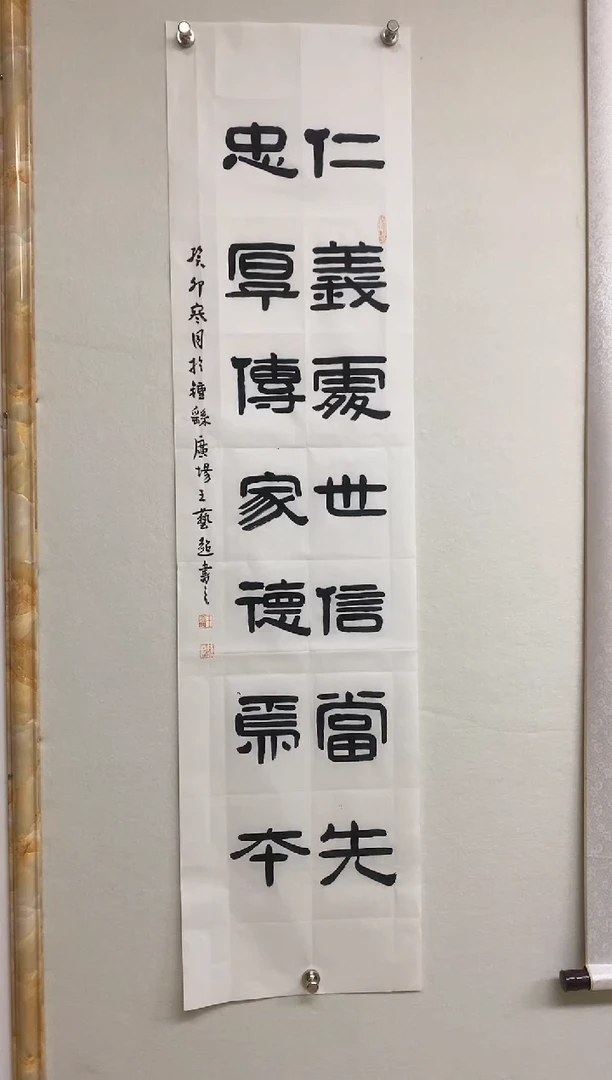 仁義處世信當先
忠厚傳家德爲本
癸卯寒月於鐘繇廣場王藝超書之